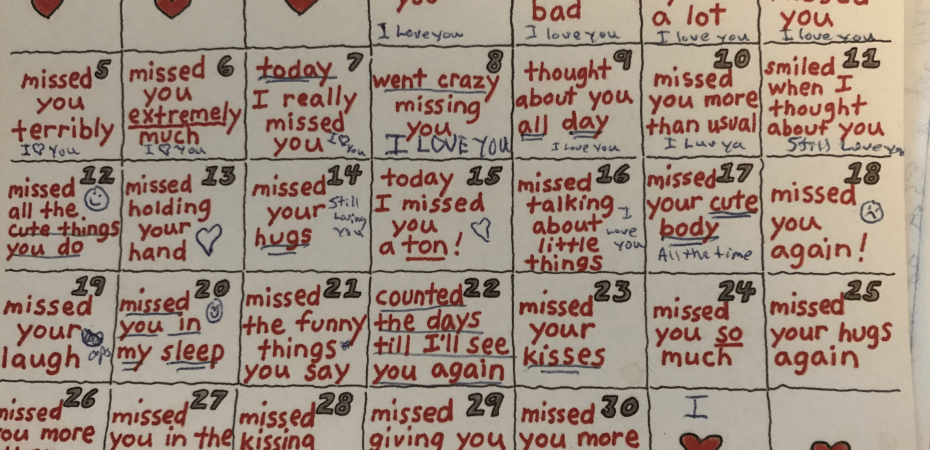 bad
a lot
you
I love you
I love you
I love you
I love you
missed 5
you
terribly
I ♡ you
missed 6
you
extremely
much
I ♡ you
today 7
I really
missed
you
I ♡ you
8
went crazy
missing
you
I LOVE YOU
9
thought
about you
all day
I love you
10
missed
you more
than usual
I Luv ya
smiled 11
when I
thought
about you
Still Love you
missed 12
all the
cute things
you do
missed 13
holding
your
hand
missed 14
your
hugs
Still
loving
you
today 15
I missed
you
a ton!
missed 16
talking
about
little
things
I
love
you
missed 17
your cute
body
All the time
18
missed
you
again!
19
missed
your
laugh
oops
missed 20
you in
my sleep
missed 21
the funny
things
you say
counted 22
the days
till I'll see
you again
missed 23
your
kisses
24
missed
you so
much
25
missed
your hugs
again
missed 26
you more
missed 27
you in the
missed 28
kissing
missed 29
giving you
missed 30
you more
I